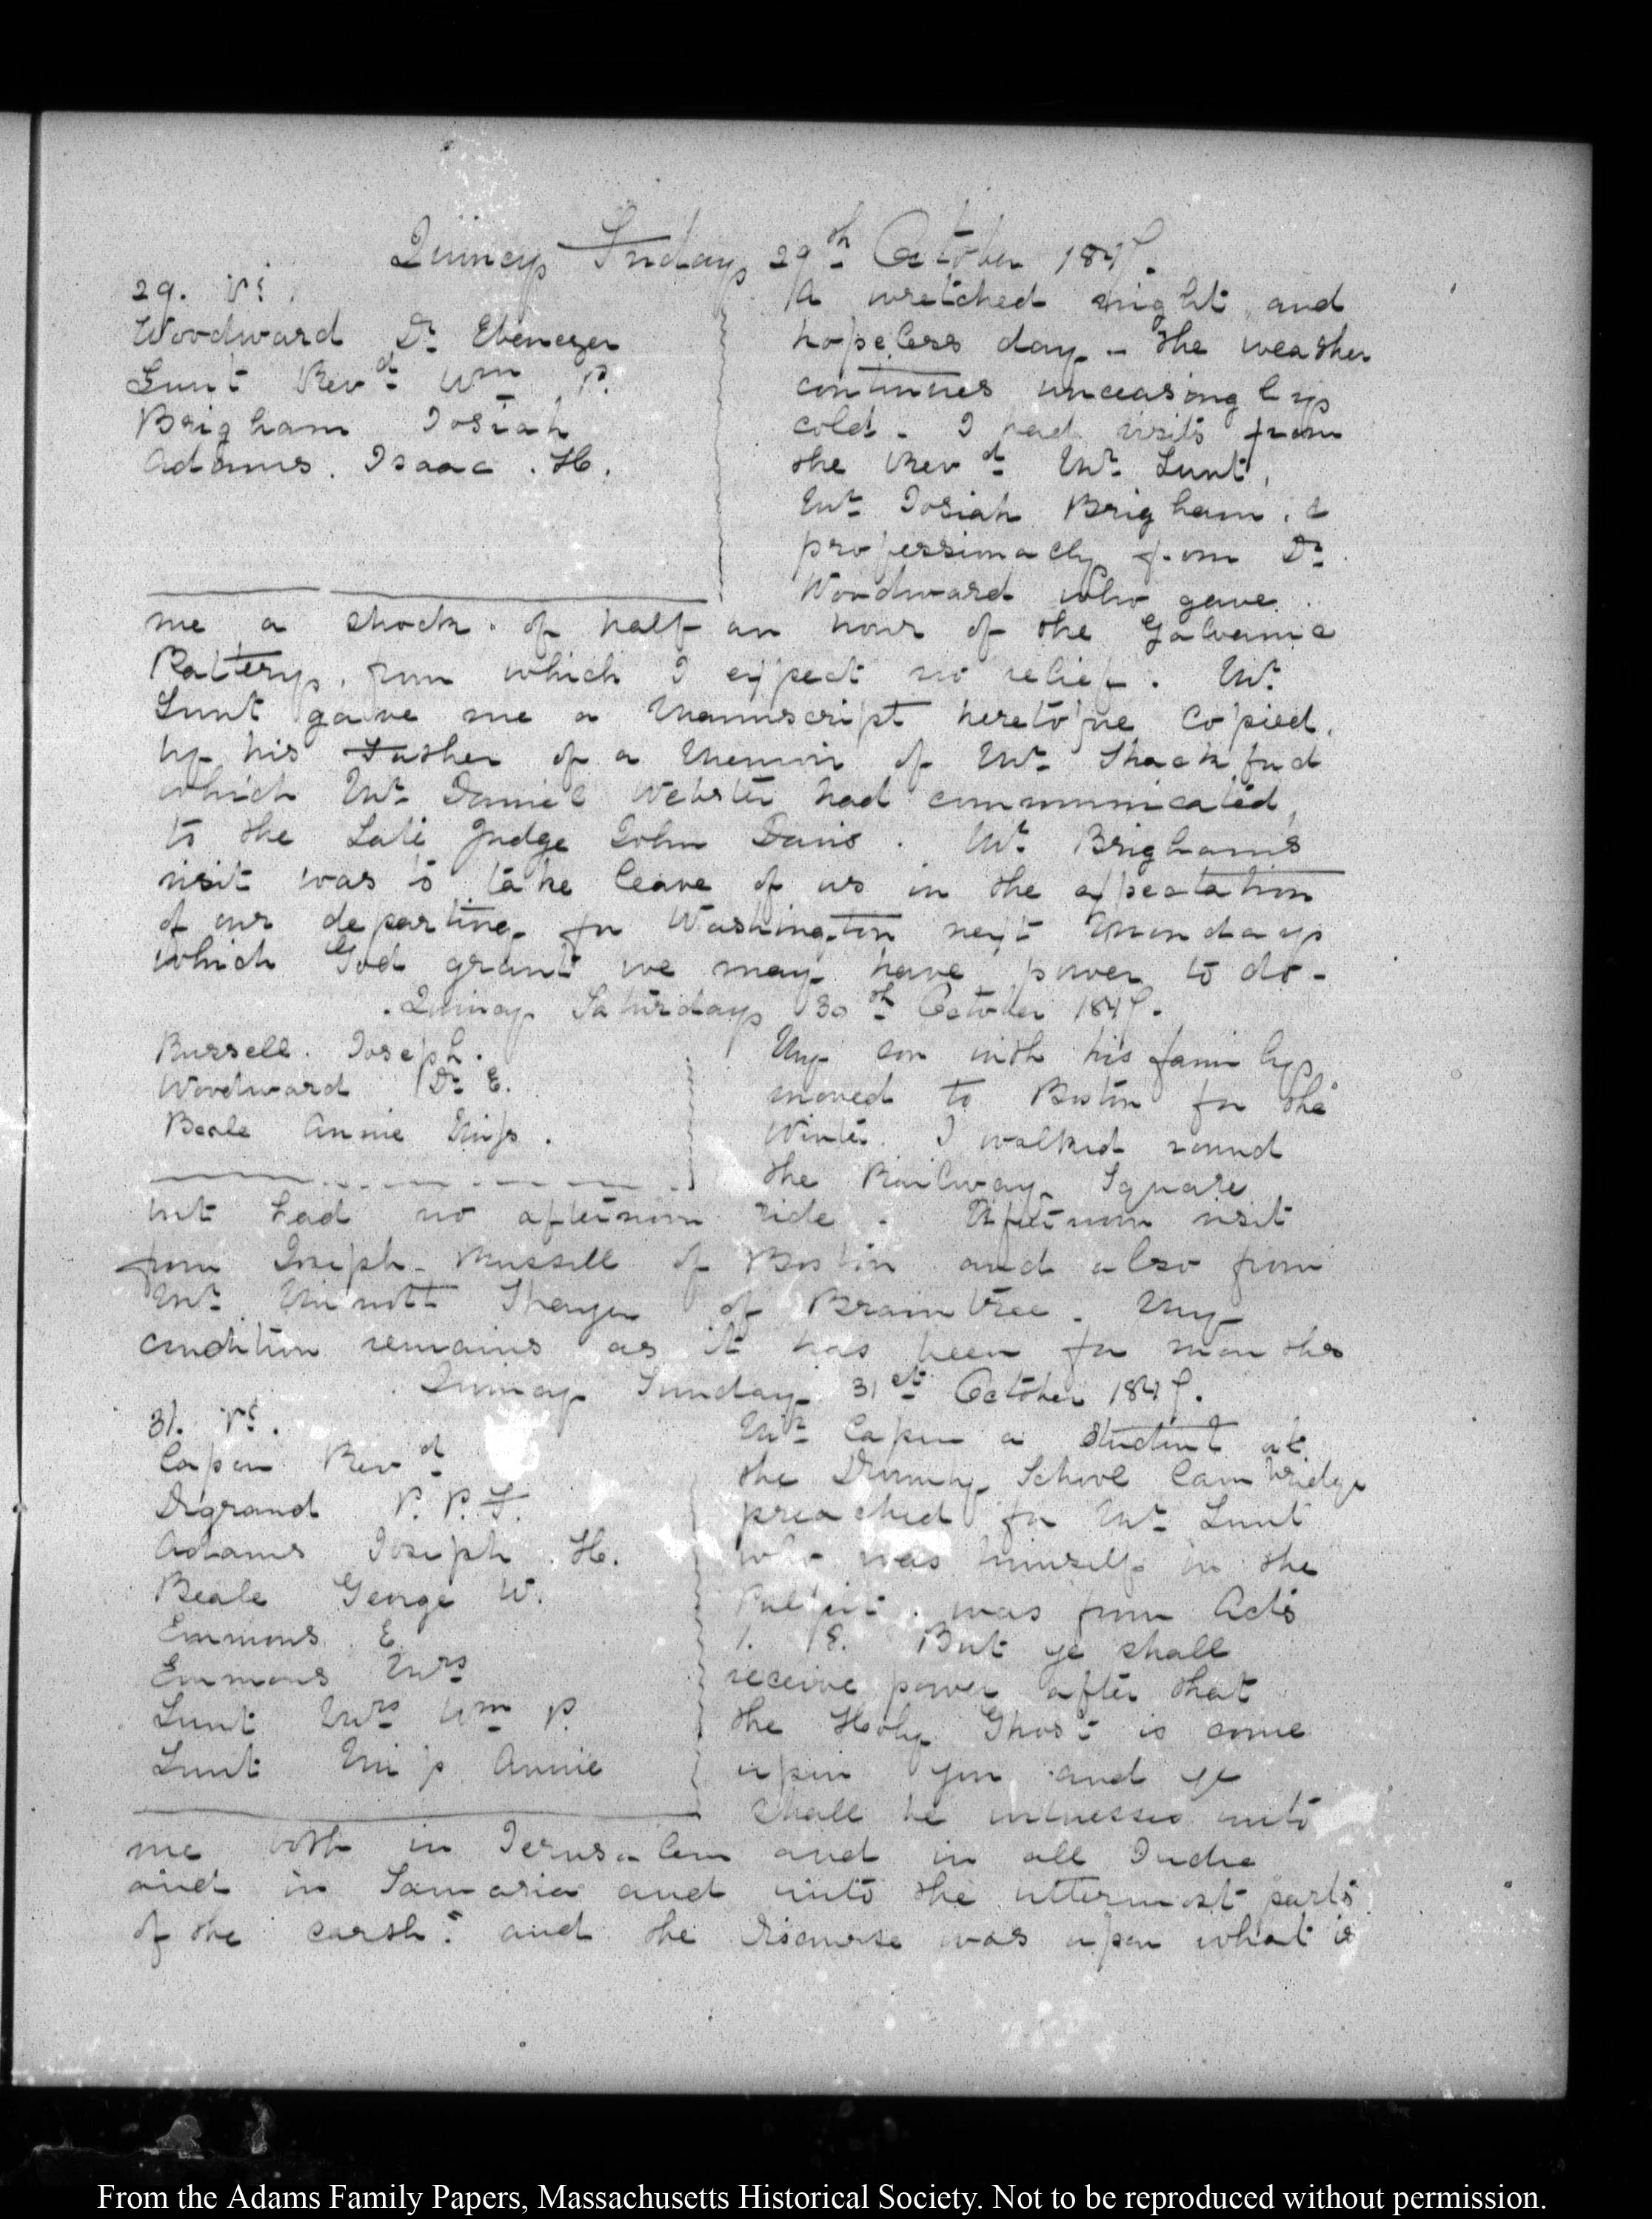 Quincy Friday 29th October 1847.
29. VI.
Woodward Dr. Ebenezer
Lunt Revd. Wm P.
Brigham Josiah
Adams. Isaac. H.
A wretched night and
hopeless day – The weather
continues unceasingly
cold – I had visits from
the Revd. Mr. Lunt,
Mr. Josiah Brigham, &
professionally from Dr.
Woodward who gave
me a shock of half an hour of the Galvanic
Battery, from which I expect no relief. Mr.
Lunt gave me a Manuscript heretofore Copied,
by his Father of a Memoir of Mr. Shackford
which Mr. Daniel Webster had communicated,
to the Late Judge John Davis. Mr. Brigham's
visit was to take leave of us in the expectation
of our departing for Washington next Monday
which God grant we may have power to do –
Quincy Saturday 30th October 1847.
Russell. Joseph.
Woodward Dr. E.
Beale Annie Miss.
My son with his family
moved to Boston for the
Winter. I walked round
the Railway Square
but had no afternoon ride. Afternoon visit
from Joseph Russell of Boston and also from
Mr. Minott Thayer of Braintree. My
condition remains as it has been for months
Quincy Sunday 31st. October 1847.
31. VI.
Capen Revd.
Degrand P. P. F.
Adams Joseph. H.
Beale George W.
Emmons E.
Emmons Mrs
Lunt Mrs Wm P.
Lunt Miss Annie
Mr. Capen a Student at
the Divinity School Cambridge
preached for Mr. Lunt
who was himself in the
Pulpit. was from Acts
1. 8. But ye shall
receive power after that
the Holy Ghost is come
upon you and ye
shall be witnesses unto
me both in Jerusalem and in all Judea
and in Samaria and unto the uttermost parts
of the earth: and the discourse was upon what is
From the Adams Family Papers, Massachusetts Historical Society. Not to be reproduced without permission.